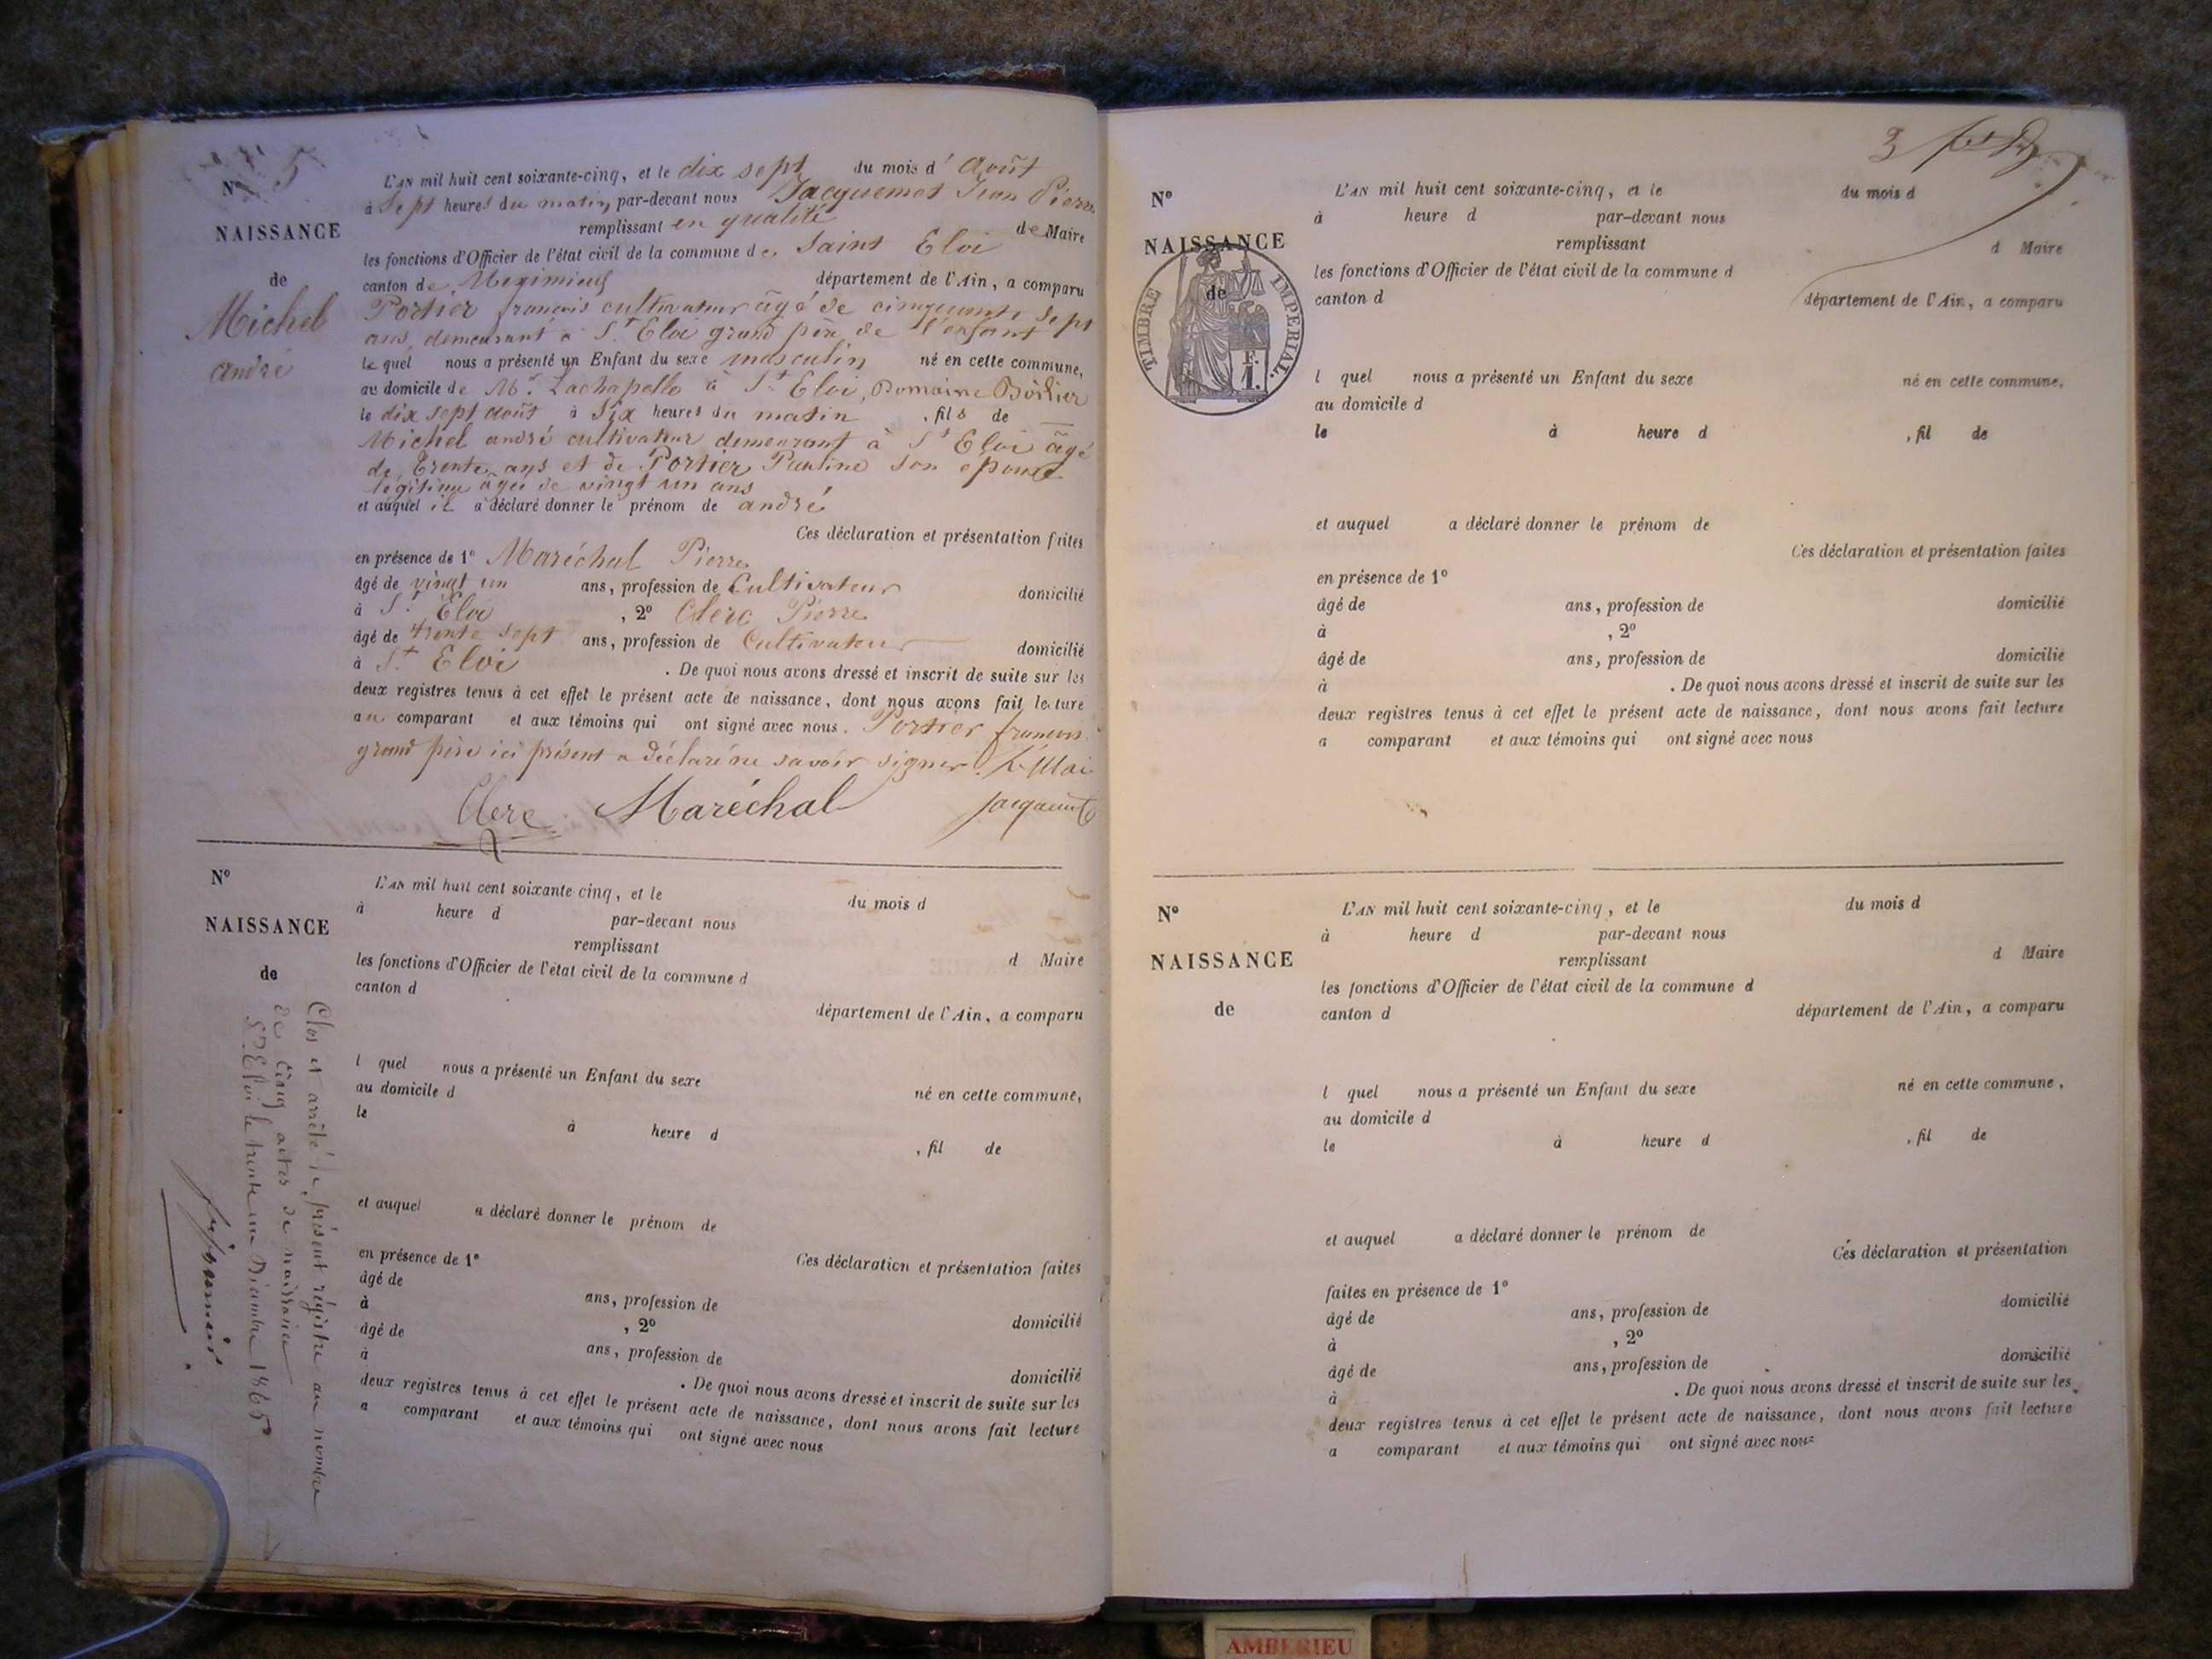 Nº 5
NAISSANCE
de
Michel
andré
L'AN mil huit cent soixante-cinq, et le dix sept du mois d'Août
à Sept heures du matin par-devant nous Jacquemet Jean Pierre
remplissant en qualité de Maire
les fonctions d'Officier de l'état civil de la commune de Saint Eloi
canton de Meximieux département de l'Ain, a comparu
Portier françois cultivateur âgé de cinquante sept
ans demeurant à St Eloi grand père de l'enfant
lequel nous a présenté un Enfant du sexe masculin né en cette commune,
au domicile de Mr Lachapelle à St Eloi, Domaine
le dix sept août à Six heures du matin, fils de
Michel andré cultivateur demeurant à St Eloi âgé
de Trente ans et de Portier Pauline son epouse
légitime âgée de vingt un ans
et auquel il a déclaré donner le prénom de andré
Ces déclaration et présentation faites
en présence de 1º Maréchal Pierre
âgé de vingt un ans, profession de Cultivateur domicilié
à St Eloi, 2º Clerc Pierre
âgé de trente sept ans, profession de Cultivateur domicilié
à St Eloi. De quoi nous avons dressé et inscrit de suite sur les
deux registres tenus à cet effet le présent acte de naissance, dont nous avons fait lecture
au comparant et aux témoins qui ont signé avec nous. Portier francois
grand père ici présent a déclaré ne savoir signer. Le Mai
Clerc Maréchal Jacquemet
Nº
NAISSANCE
de
L'AN mil huit cent soixante-cinq, et le du mois d
à heure d par-devant nous
remplissant d Maire
les fonctions d'Officier de l'état civil de la commune d
canton d département de l'Ain, a comparu
l quel nous a présenté un Enfant du sexe né en cette commune,
au domicile d
le à heure d , fil de
et auquel a déclaré donner le prénom de
Ces déclaration et présentation faites
en présence de 1º
âgé de ans, profession de domicilié
à , 2º
âgé de ans, profession de domicilié
à . De quoi nous avons dressé et inscrit de suite sur les
deux registres tenus à cet effet le présent acte de naissance, dont nous avons fait lecture
a comparant et aux témoins qui ont signé avec nous
Clos et arrêté le présent régistre au nombre
de Cinq actes de naissance
St Eloi le trente un Décembre 1865
3
Nº
NAISSANCE
de
TIMBRE IMPERIAL.
F.
1.
L'AN mil huit cent soixante-cinq, et le du mois d
à heure d par-devant nous
remplissant d Maire
les fonctions d'Officier de l'état civil de la commune d
canton d département de l'Ain, a comparu
l quel nous a présenté un Enfant du sexe né en cette commune,
au domicile d
le à heure d , fil de
et auquel a déclaré donner le prénom de
Ces déclaration et présentation faites
en présence de 1º
âgé de ans, profession de domicilié
à , 2º
âgé de ans, profession de domicilié
à . De quoi nous avons dressé et inscrit de suite sur les
deux registres tenus à cet effet le présent acte de naissance, dont nous avons fait lecture
a comparant et aux témoins qui ont signé avec nous
Nº
NAISSANCE
de
L'AN mil huit cent soixante-cinq, et le du mois d
à heure d par-devant nous
remplissant d Maire
les fonctions d'Officier de l'état civil de la commune d
canton d département de l'Ain, a comparu
l quel nous a présenté un Enfant du sexe né en cette commune,
au domicile d
le à heure d , fil de
et auquel a déclaré donner le prénom de
Ces déclaration et présentation
faites en présence de 1º
âgé de ans, profession de domicilié
à , 2º
âgé de ans, profession de domicilié
à . De quoi nous avons dressé et inscrit de suite sur les
deux registres tenus à cet effet le présent acte de naissance, dont nous avons fait lecture
a comparant et aux témoins qui ont signé avec nous
AMBERIEU